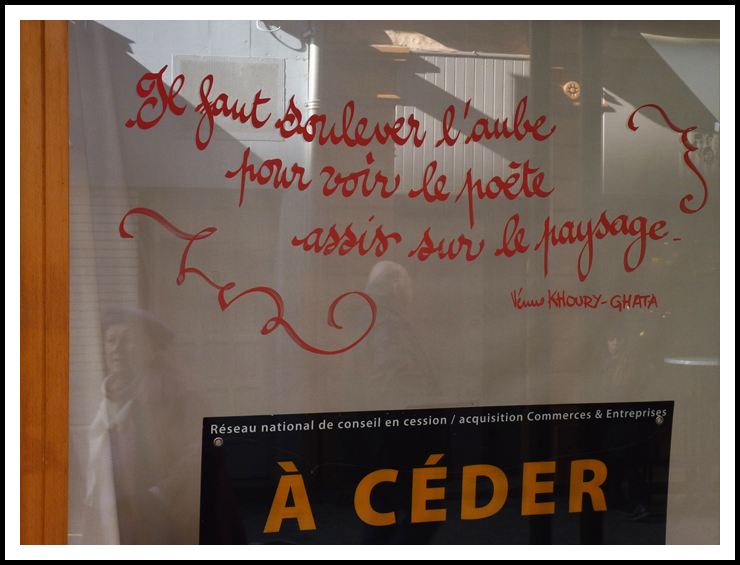 Il faut soulever l'aube
pour voir le poète
assis sur le paysage.
Vénus KHOURY-GHATA
Réseau national de conseil en cession / acquisition Commerces & Entreprises
À CÉDER